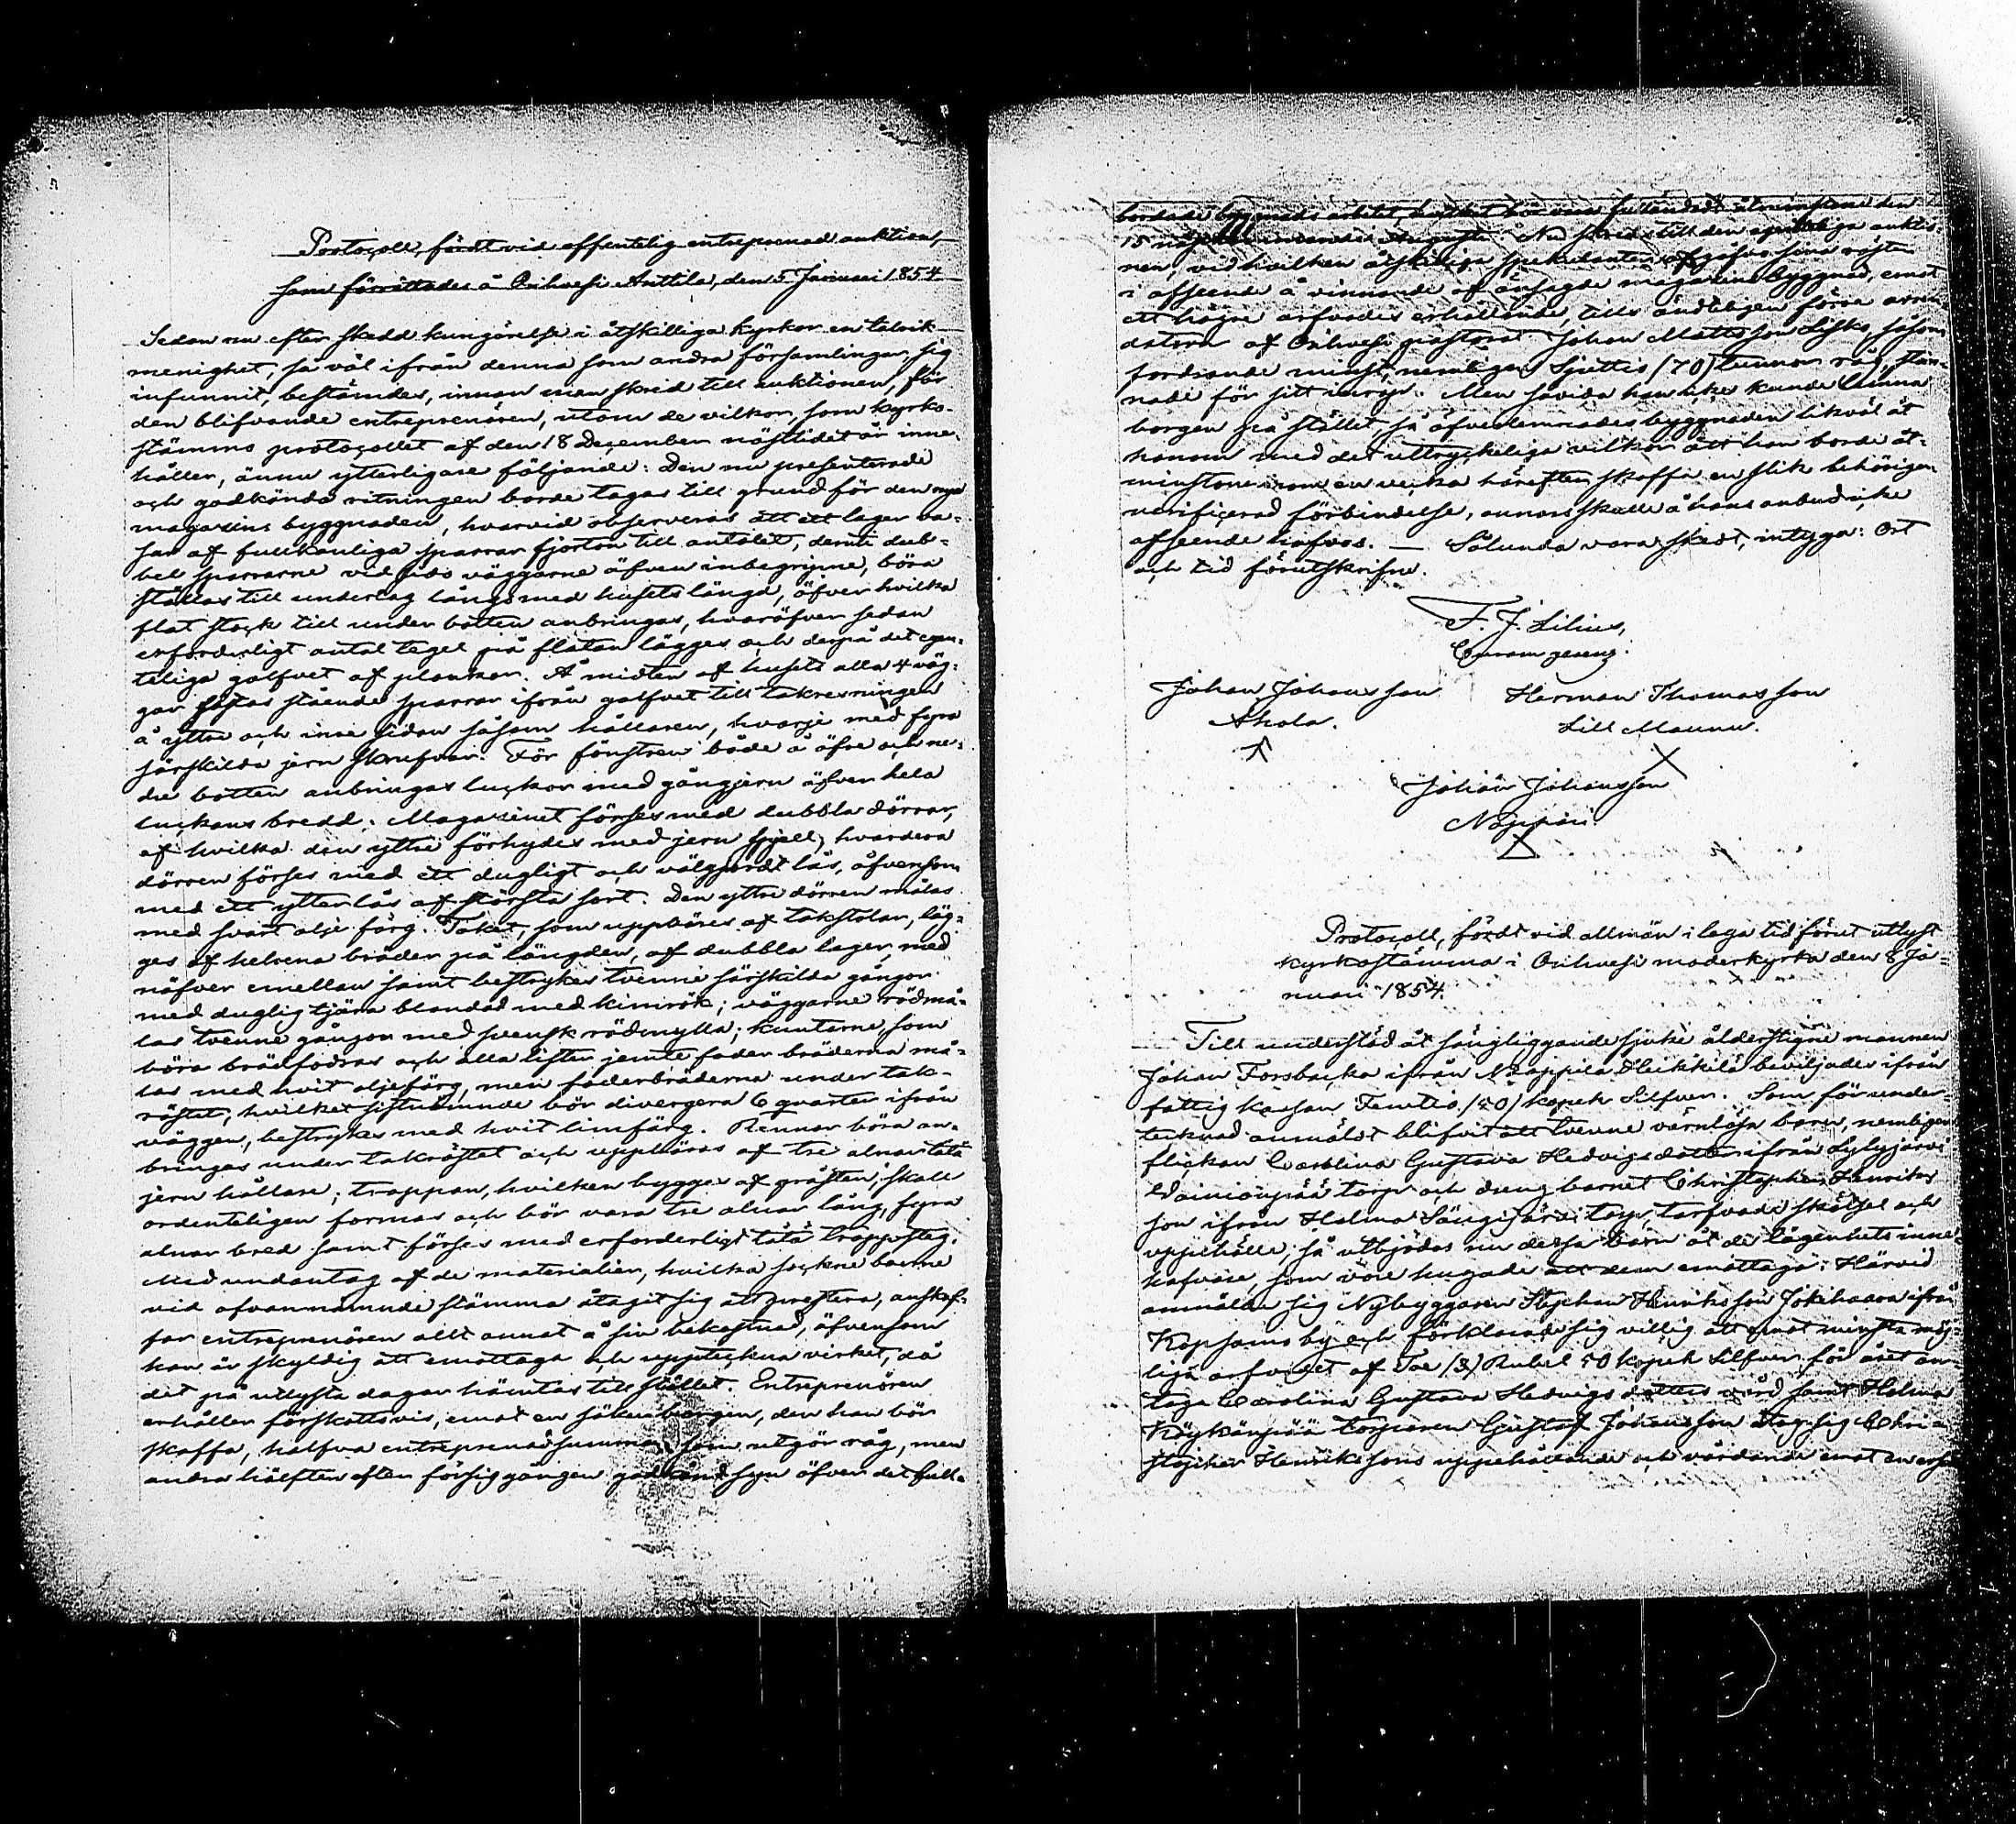 Protocoll, fördt vid offentelig entreprenad auktion,
som förrättades å Orihvesi Anttila, den 5 Januari 1854
Sedan nu efter skedd kungörelse i åtskilliga kyrkor en talrik
menighet, så väl ifrån denna som andra församlingar, sig
infunnit, bestämdes, innan man skred till auktionen, för
den blifvande entreprenören, utom de vilkor, som kyrko-
stämmo protocollet af den 18 December nästlidet år inne-
håller, ännu ytterligare följande: Den nu presenterade
och godkända ritningen borde tagas till grund för den nya
magasins byggnaden, hvarvid observeras att ett lager ba-
sar af fullkanliga sparrar fjorton till antalet, derute dub-
bel sparrarne vid sido väggarne äfven inbegripne, böra
ställas till underlag långs med husets längd, öfver hvilka
flat stock till under botten anbringas, hvaröfver sedan
erforderligt antal tegel på flatan lägges och derpå det egen-
teliga golfvet af plankor. Å midten af husets alla 4 väg-
gar fästas stående sparrar ifrån golfvet till takresningen
å yttre och inre sidan såsom hållaren, hvarje med fyra
särskilda jern skrufvar. För fönstren både å öfre och ne-
dre botten anbringas luckor med gångjern öfver hela
luckans bredd. Magasinet förses med dubbla dörrar,
af hvilka den yttre förhydes med jern spjell, hvardera
dörren förses med ett dugligt och välgjordt lås, äfvensom
med ett ytterlås af största sort. Den yttre dörren målas
med svart olje färg. Taket, som uppbäres af takstolar, läg-
ges af helrena bräder på längden, af dubbla lager, med
näfver emellan samt bestrykes tvenne särskilda gånger
med duglig tjära blandad med kimrök; väggarne rödmå-
las tvenne gånger med svensk rödmylla; knutarne, som
böra brädfodras och alla lister jemte foder bräderna må-
las med hvit oljefärg, men foderbräderna under tak-
röstet, hvilket sistnämnde bör divergera 6 qvarter ifrån
väggen, bestrykes med hvit limfärg. Rennor böra an-
bringas under takröstet och uppbäras af tre alnar täta
jern hållare; trappan, hvilken bygges af gråsten, skall
ordenteligen formas och bör vara tre alnar lång, fyra
alnar bred samt förses med erforderligt täta trappsteg.
Med undantag af de materialier, hvilka sockne boerne
vid ofvannämnde stämma åtagit sig att prestera, anskaf-
far entreprenören allt annat å sin bekostnad, äfvensom
han är skyldig att emottaga och uppteckna virket, då
det på utlysta dagar hämtas till stället. Entreprenören
erhåller förskottsvis, emot en säker borgen, den han bör
skaffa, halfva entreprenadsumman, som utgör råg, men
andra hälften efter försiggången godkänd syn öfver det full-
bordade byggnads arbetet, hvilket bör vara fulländadt åtminstone den
15 nästkommande Augusti. Nu skreds till den egenteliga auktio-
nen, vid hvilken åtskilliga spekulanter afgåfvo sina röster
i afseende å vinnande af ansagde magasins byggnad, emot
ett högre arfvodes erhållande, tills ändteligen förre arren-
datorn af Orihvesi prästora Johan Mattsson Lisko, såsom
fordrande minst, nemligen Sjuttio (70) tunnor råg, stan-
nade för sitt inrop. Men såvida han icke kunde lemna
borgen på stället, så öfverlemnades byggnaden likväl åt
honom med det uttryckeliga vilkor att han borde åt-
minstone inom en vecka härefter skaffa en slik behörigen
verificerad förbindelse, annars skulle å hans anbud icke
afseende hafvas. — Sålunda vara skedt, intyga: Ort
och tid förutskrifne.
F. J. Lilius,
Curam gerens.
Johan Johansson Herman Thomasson
Ahola. Lill Maunu.
Johan Johansson
Näppäri.
Protocoll, fördt vid allmän i laga tid förut utlyst
kyrkostämma i Orihvesi moderkyrka den 8 Ja-
nuari 1854.
Till understöd åt sängliggande sjuke ålderstigne mannen
Johan Forsbacka ifrån Näppilä Heikkilä beviljades ifrån
fattig kassan Femtio (50) kopek Silfver. Som för under-
tecknad anmäldt blifvit att tvenne värnlösa barn, nemligen
flickan Carolina Gustava Hedvigsdotter ifrån Lylyjärvi
Wainionpää torp och dreng barnet Christopher Henriks-
son ifrån Holma Längijärvi torp, tarfvade skötsel och
uppehälle, så utbjödos nu dessa barn åt de lägenhets inne-
hafvare, som vore hugade att dem emottaga. Härvid
anmälde sig Nybyggaren Stephan Henriksson Jokihaara ifrån
Kopsamo by och förklarade sig villig att emot minsta möj-
liga arfvodet af Tre (3) Rubel 50 kopek Silfver för året an-
taga Carolina Gustava Hedvigs dotters vård samt Holma
Köykänpää torparen Gustaf Johansson åtog sig Chri-
stopher Henrikssons uppehållande och vårdande emot en ersätt-